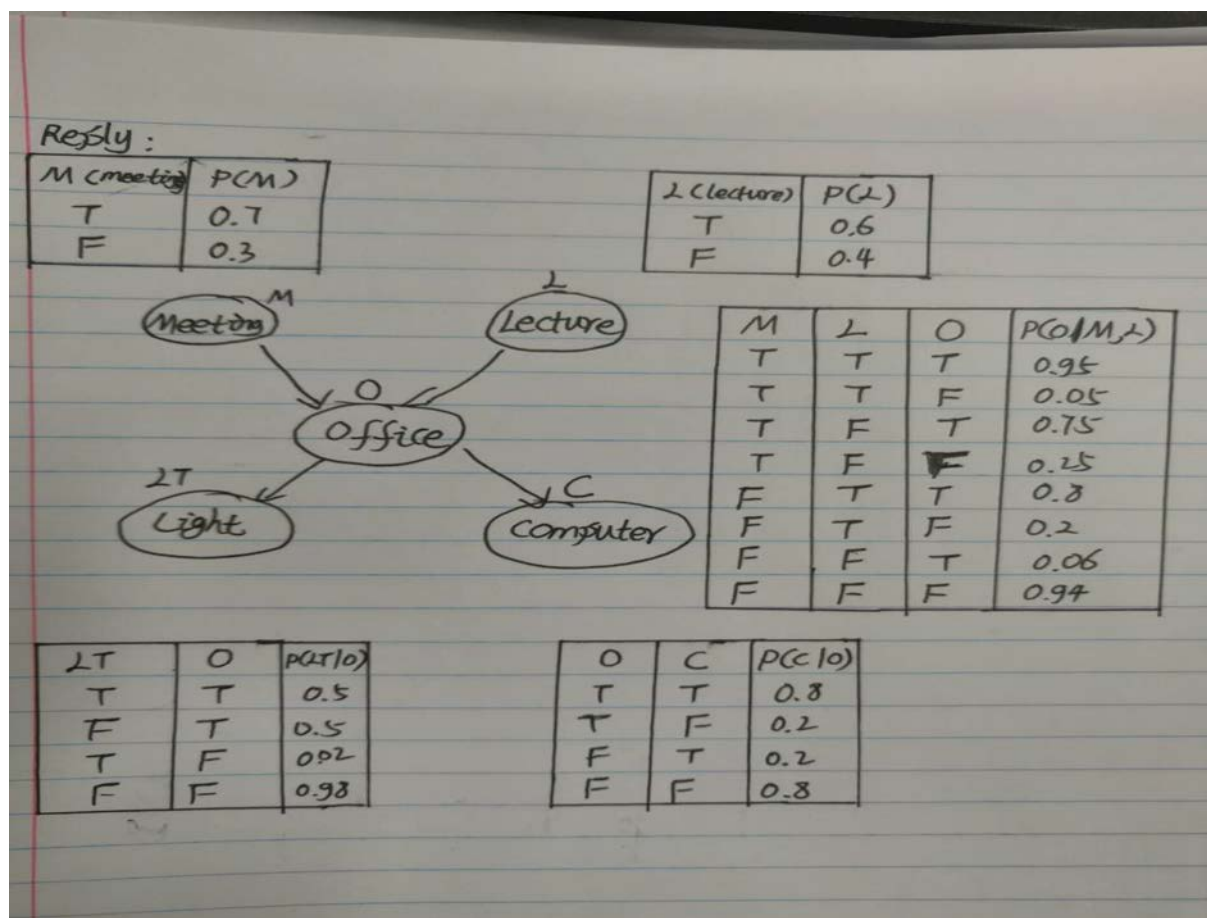 Reply :
M (meeting) P(M)
T 0.7
F 0.3
L (lecture) P(L)
T 0.6
F 0.4
M
Meeting
L
Lecture
O
Office
LT
Light
C
Computer
M L O P(O|M,L)
T T T 0.95
T T F 0.05
T F T 0.75
T F F 0.25
F T T 0.8
F T F 0.2
F F T 0.06
F F F 0.94
LT O P(LT|O)
T T 0.5
F T 0.5
T F 0.02
F F 0.98
O C P(C|O)
T T 0.8
T F 0.2
F T 0.2
F F 0.8